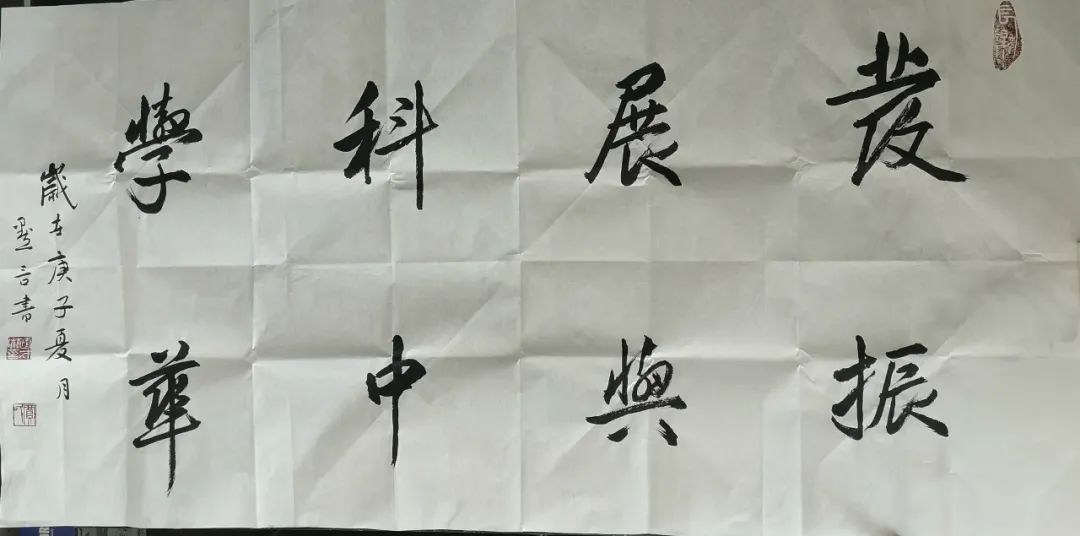 發展科學
振興中華
歲在庚子夏月
墨言書